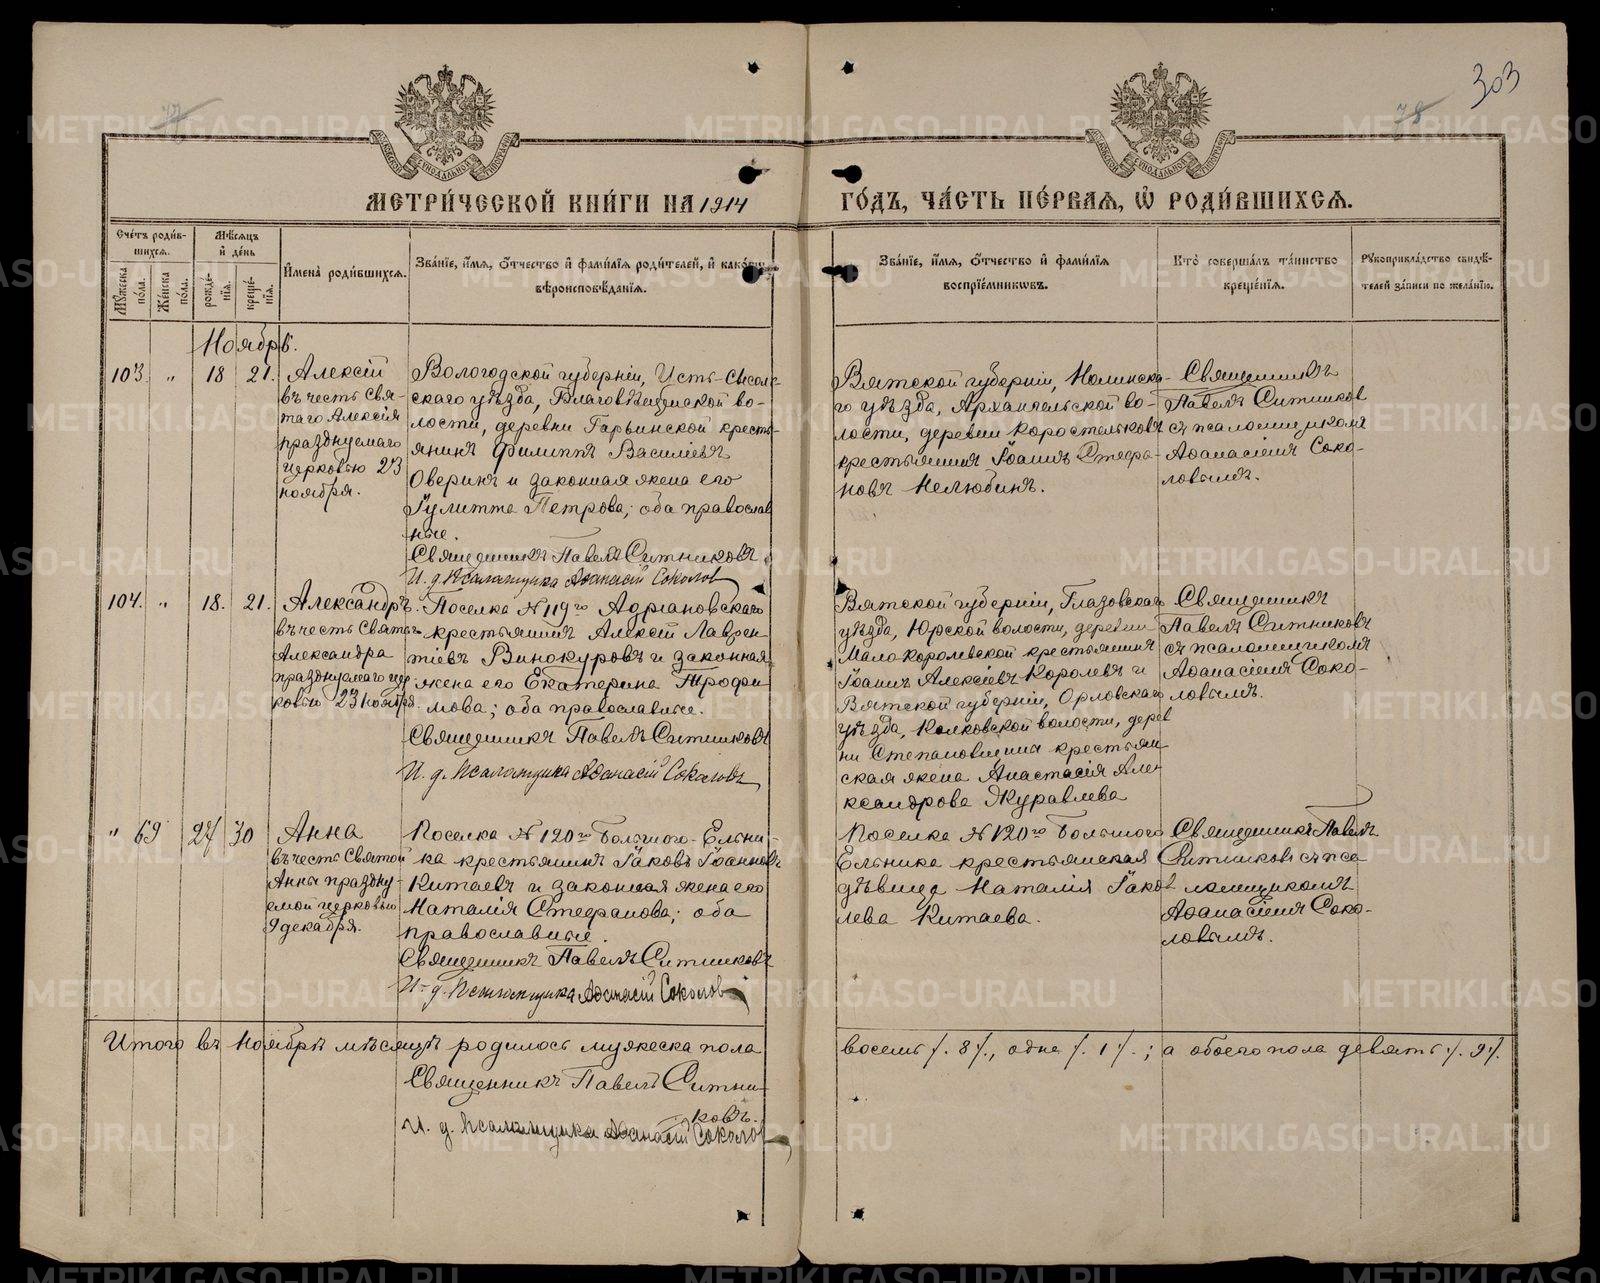 303
77
78
МЕТРИ́ЧЕСКОЙ КНИ́ГИ НА 1914
ГО́ДЪ, ЧА́СТЬ ПЕ́РВАѦ, Ѡ҆ РОДИ́ВШИХСѦ.
Сче́тъ роди́в-
шихсѧ.
Мѣ́сѧцъ
и҆ де́нь
Мꙋ́жеска
по́ла.
Же́нска
по́ла.
рожде́-
нїѧ.
креще́-
нїѧ.
И҆мена̀ роди́вшихсѧ.
Зва́нїе, и҆́мѧ, о҆́тчество и҆ фами́лїѧ роди́телей, и҆ како́гѡ
вѣроисповѣ́данїѧ.
Зва́нїе, и҆́мѧ, о҆́тчество и҆ фами́лїѧ
воспрїе́мникѡвъ.
Кто̀ соверша́лъ та́инство
креще́нїѧ.
Рꙋкоприкла́дство свидѣ́-
телей за́писи по жела́нїю.
Ноябрь.
103. „ 18 21.
Алексій
въ честь Свя-
таго Алексія
празднуемаго
церковью 23
ноября.
Вологодской губерніи, Усть-Сысоль-
скаго уѣзда, Благовѣщенской во-
лости, деревни Гарьинской кресть-
янинъ Филиппъ Василіевъ
Оверинъ и законная жена его
Іулитта Петрова; оба православ
ные.
Священникъ Павелъ Ситниковъ
И. д. Псаломщика Аѳанасій Соколов
Вятской губерніи, Нолинска-
го уѣзда, Архангельской во-
лости, деревни Коростельковъ
крестьянинъ Іоаннъ Стефа-
новъ Нелюбинъ.
Священникъ
Павелъ Ситников
съ псаломщикомъ
Аѳанасіемъ Соко-
ловымъ.
104. „ 18. 21.
Александръ
въ честь Святаго
Александра
празднуемаго цер
ковью 23 ноября.
Поселка №119го Адріановскаго
крестьянинъ Алексій Лаврен
тіевъ Винокуровъ и законная
жена его Екатерина Трофи
мова; оба православные.
Священникъ Павелъ Ситниковъ
И. д. Псаломщика Аѳанасій Соколовъ
Вятской губерніи, Глазовскаго
уѣзда, Юрской волости, деревни
Мало Королевской крестьянинъ
Іоаннъ Алексіевъ Королевъ и
Вятской губерніи, Орловскаго
уѣзда, Колковской волости, дерев
ни Степановщина крестьян
ская жена Анастасія Але-
ксандрова Журавлева
Священникъ
Павелъ Ситниковъ
съ псаломщикомъ
Аѳанасіемъ Соко-
ловымъ.
„ 69 27 30
Анна
въ честь Святой
Анны праздну-
емой церковью
9 декабря.
Поселка №120го Большого-Ельни-
ка крестьянинъ Іаковъ Іоанновъ
Китаевъ и законная жена его
Наталія Стефанова; оба
православные.
Священникъ Павелъ Ситниковъ
И. д. Псаломщика Аѳанасій Соколов
Поселка №120го Большого
Ельника крестьянская
дѣвица Наталія Іаков
лева Китаева.
Священникъ Павелъ
Ситниковъ съ пса
ломщикомъ
Аѳанасіемъ Соко-
ловымъ.
Итого въ Ноябрѣ мѣсяцѣ родилось мужеска пола
восемь /. 8 /., одна /. 1 /.; а обоего пола девять /. 9 /.
Священникъ Павелъ Ситни-
ковъ.
И. д. Псаломщика Аѳанасій Соколов
METRIKI.GASO-URAL.RU